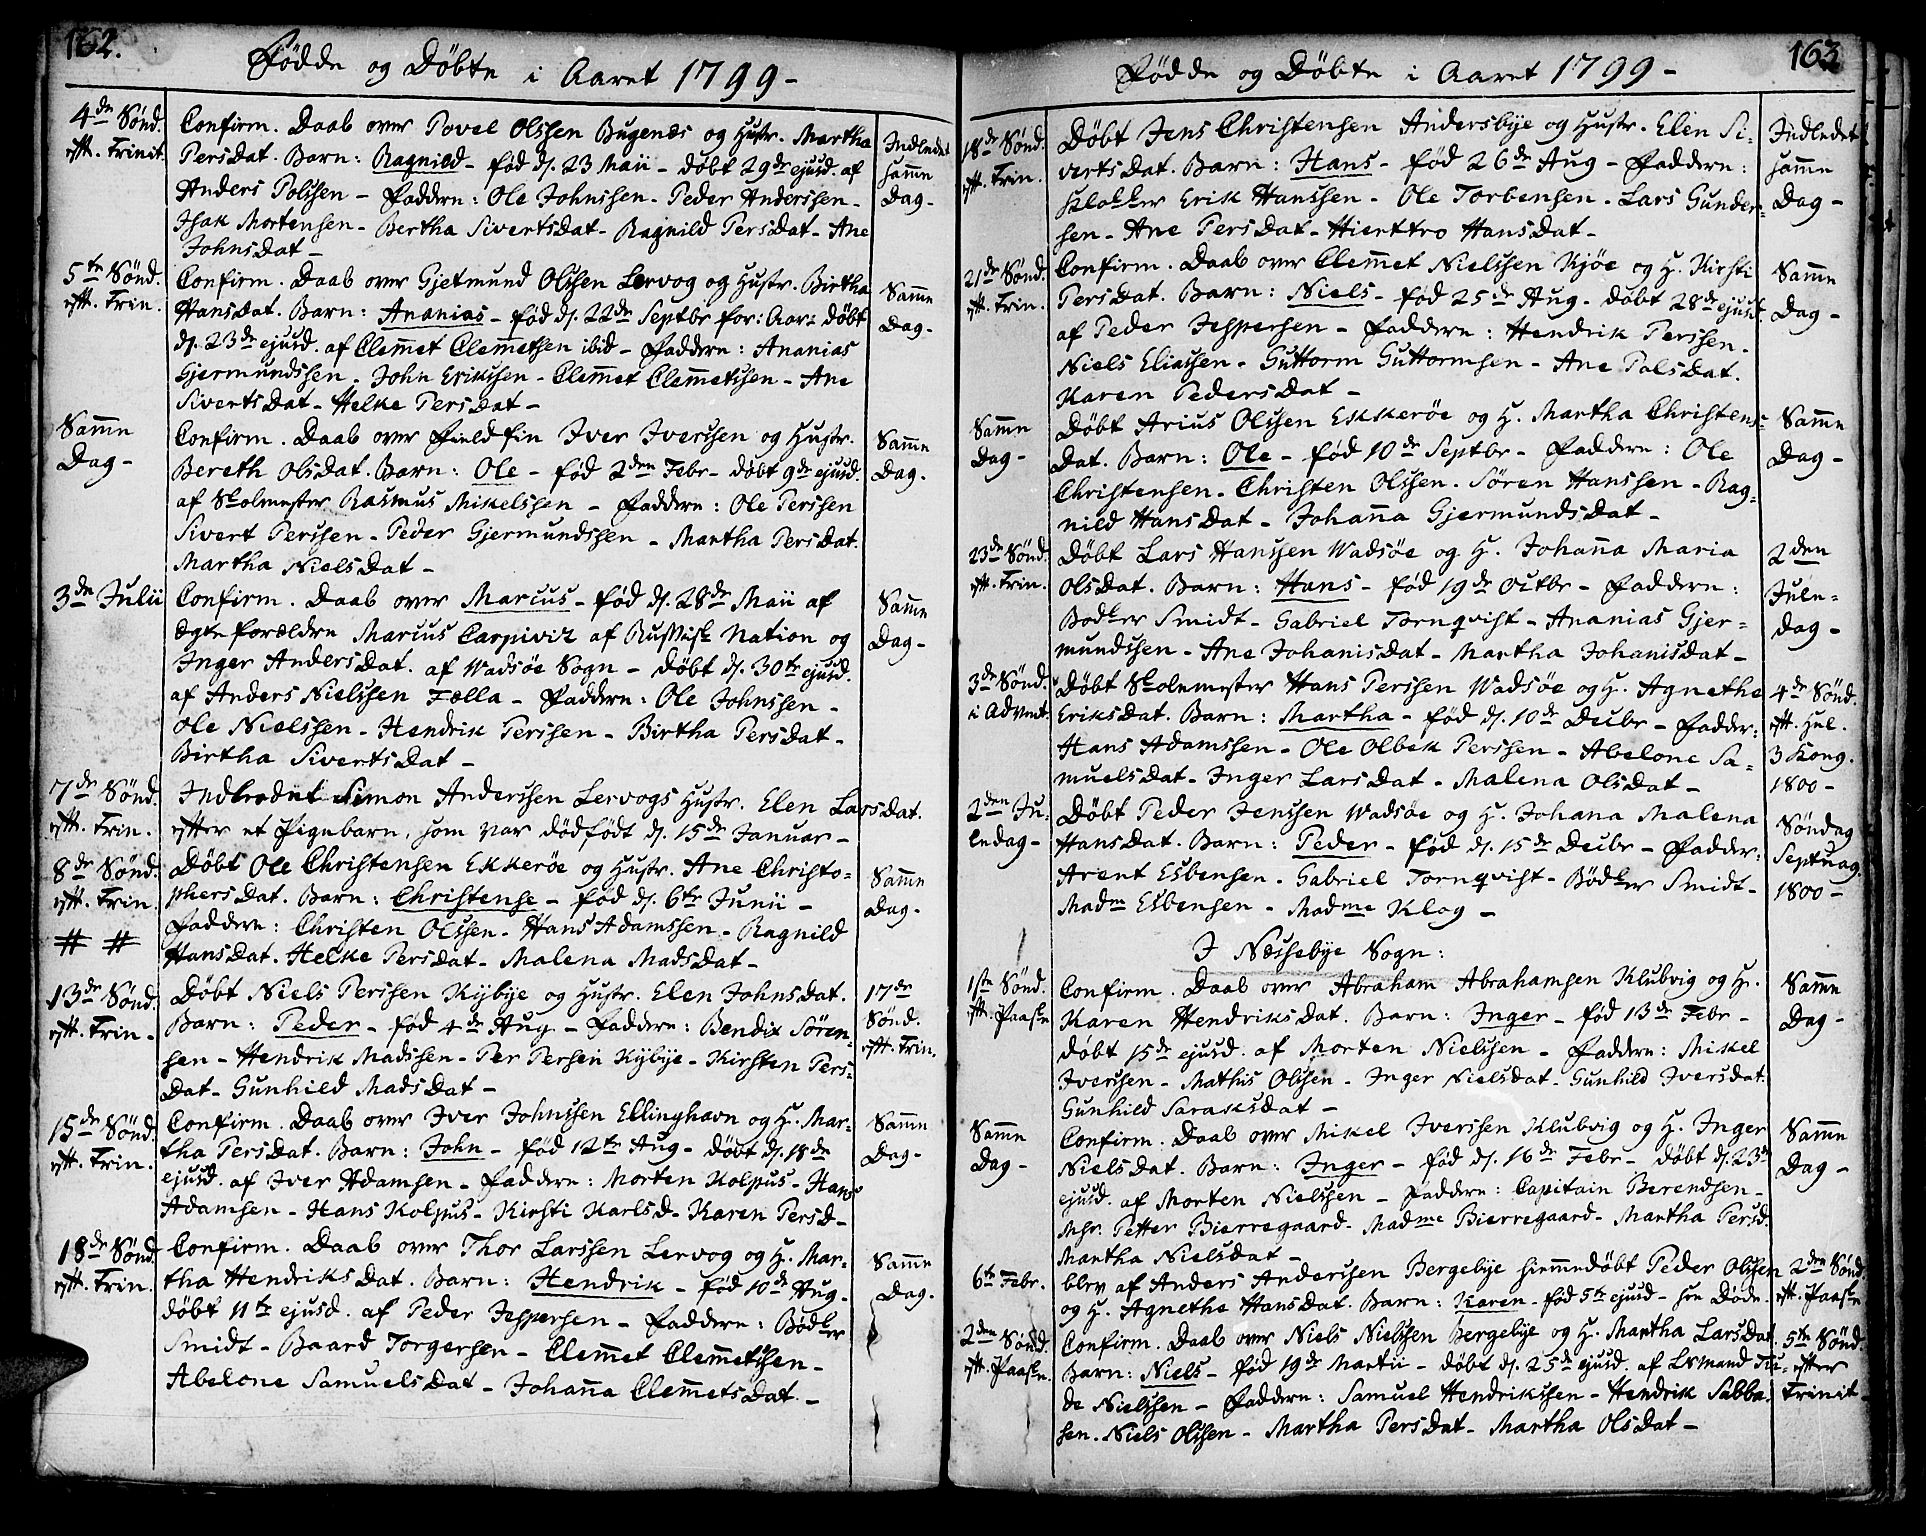 162.
Fødde og Døbte i Aaret 1799-
4de Sønd.
eft. Trinit.
Confirm. Daab over Povel Olssen Bugenæs og Hustr. Martha
PersDat. Barn: Ragnild - fød d. 23 Maii - døbt 29de ejusd. af
Anders Polssen - Faddere: Ole Johnssen - Peder Anderssen -
Isak Mortensen - Bertha SivertsDat - Ragnild PersDat - Ane
JohnsDat -
Indledet
samme
Dag -
5te Sønd.
eft. Trin.
Confirm. Daab over Gjetmund Olssen Lervog og Hustr. Birtha
HansDat. Barn: Ananias - fød d. 22de Septbr for: Aar: døbt
d. 23de ejusd. af Clemet Clemetsen ibid - Faddere: Ananias
Gjermundssen - John Erikssen - Clemet Clemetssen - Ane
SivertsDat - Helke PersDat -
Samme
Dag -
Samme
Dag -
Confirm. Daab over Fieldfin Iver Iverssen og Hustr.
Bereth OlsDat. Barn: Ole - fød 2den Febr - døbt 9de ejusd.
af Skolmester Rasmus Mikelssen - Faddere: Ole Perssen
Sivert Perssen - Peder Gjermundssen - Martha PersDat.
Martha NielsDat -
Samme
Dag -
3de Julii
Confirm. Daab over Marcus - fød d. 28de Maii af
ægte forældre Marcus Carpiviz af Russisk Nation og
Inger AndersDat. af Wadsøe Sogn - døbt d. 30te ejusd.
af Anders Nielssen Fælla - Faddere: Ole Johnssen -
Ole Nielssen - Hendrik Perssen - Birtha PersDat -
Birtha SivertsDat -
Samme
Dag -
7de Sønd.
eft. Trin.
Simon Anderssen Lervogs Hustr. Elen LarsDat.
efter et Pigebarn, som var dødfødt d. 15de Januar -
8de Sønd.
eft. Trin.
# #
Døbt Ole Christensen Ekkerøe og Hustr. Ane Christo=
phersDat. Barn: Christense - fød d. 6te Junii -
Faddere: Christen Olssen - Hans Adamssen - Ragnild
HansDat. Helke PersDat - Malena MadsDat -
Samme
Dag -
13de Sønd.
eft. Trin -
Døbt Niels Perssen Kybye og Hustr. Elen JohnsDat.
Barn: Peder - fød 4de Aug - Faddere: Bendix Søren
sen - Hendrik Madssen - Per Persen Kybye - Kirsten Pers=
Dat - Gunhild MadsDat -
17de
Sønd.
eft. Trin.
15de Sønd.
eft. Trin.
Confirm. Daab over Iver Johnssen Ellinghavn og H. Mar=
tha PersDat. Barn: John - fød 12te Aug - døbt d. 18de
ejusd. af Iver Adamsen - Faddere: Morten Kolpus - Hans
Adamsen - Hans Kolpus - Kirsti Karlsd - Karen Persd -
Samme
Dag -
18de Sønd
eft. Trin.
Confirm. Daab over Thor Larssen Lervog og H. Mar=
tha HendriksDat. Barn: Hendrik - fød 10de Aug -
døbt 11te ejusd. af Peder Jespersen - Faddere: Bødker
Smidt - Baard Torgersen - Clemet Clemetssen -
Abelone SamuelsDat - Johana ClemetsDat. -
Samme
Dag -
163
Fødde og Døbte i Aaret 1799 -
18de Sønd.
eft. Trin.
Døbt Jens Christensen Andersbye og Hustr. Elen Si=
vertsDat. Barn: Hans - fød 26de Aug - Faddere:
Klokker Erik Hanssen - Ole Torbensen - Lars Gunder=
sen - Ane PersDat - Hierttro HansDat -
Indledet
samme
Dag -
21de Sønd.
eft. Trin.
Confirm. Daab over Clemet Nielssen Kjøe og H. Kirsti
PersDat. Barn: Niels - fød 25de Aug - døbt 28de ejusd.
af Peder Jespersen - Faddere: Hendrik Perssen -
Niels Eliassen - Guttorm Guttormsen - Ane PolsDat.
Karen PedersDat -
Samme
Dag -
Samme
Dag -
Døbt Arius Olssen Ekkerøe og H. Martha Christens=
Dat. Barn: Ole - fød 10de Septbr - Faddere: Ole
Christensen - Christen Olssen - Søren Hanssen - Rag=
nild HansDat - Johana GjermundsDat -
Samme
Dag -
23de Sønd.
eft. Trin.
Døbt Lars Hanssen Wadsøe og H. Johana Maria
OlsDat. Barn: Hans - fød 19de Octbr - Faddere:
Bødker Smidt - Gabriel Tornqvist - Ananias Gjer=
mundssen - Ane JohanisDat - Martha JohanisDat -
2den
Jule=
dag -
3de Sønd.
i Advent.
Døbt Skolemester Hans Perssen Wadsøe og H. Agnethe
EriksDat. Barn: Martha - fød d. 10de Decbr - Fadder:
Hans Adamssen - Ole Olbek Perssen - Abelone Sa=
muelsDat - Inger LarsDat - Malena OlsDat -
4de Sønd.
eft. Hel.
3 Kong.
1800 -
2den Ju=
ledag -
Døbt Peder Jenssen Wadsøe og H. Johana Malena
HansDat. Barn: Peder - fød d. 15de Decbr - Fadder:
Arent Esbensen - Gabriel Tornqvist - Bødker Smidt -
Madm Esbensen - Madme Klog -
Søndag
Septuag
1800 -
I Næssebye Sogn:
1ste Sønd.
eft. Paaske
Confirm. Daab over Abraham Abrahamsen Klubvig og H.
Karen HendriksDat. Barn: Inger - fød 13de Febr -
døbt 15de ejusd. af Morten Nielssen - Faddere: Mikel
Iverssen - Mathis Olssen - Inger NielsDat - Gunhild IversDat.
Gunhild SaraksDat -
Samme
Dag -
Samme
Dag -
Confirm. Daab over Mikel Iverssen Klubvig og H. Inger
NielsDat. Barn: Inger - fød d. 16de Febr - døbt d. 23de
ejusd. af Morten Nielssen - Faddere: Capitain Berendsen -
Mhr. Petter Bierregaard - Madme Bierregaard - Martha Persd.
Martha NielsDat -
Samme
Dag -
6te Febr.
blev af Anders Anderssen Bergebye hiemmedøbt Peder Olssen
og H. Agnethe HansDat. Barn: Karen - fød 5te ejusd -
2den Sønd.
eft. Paaske
2den Sønd.
eft. Paaske.
Confirm. Daab over Niels Nielssen Bergebye og H. Martha LarsDat
Barn: Niels - fød 19de Martii - døbt d. 25de ejusd. af
Nielssen - Faddere: Samuel Hendrikssen - Hendrik Sabba=
sen - Niels Olssen - Martha PersDat - Martha OlsDat -
5te Sønd.
efter
Trinit -